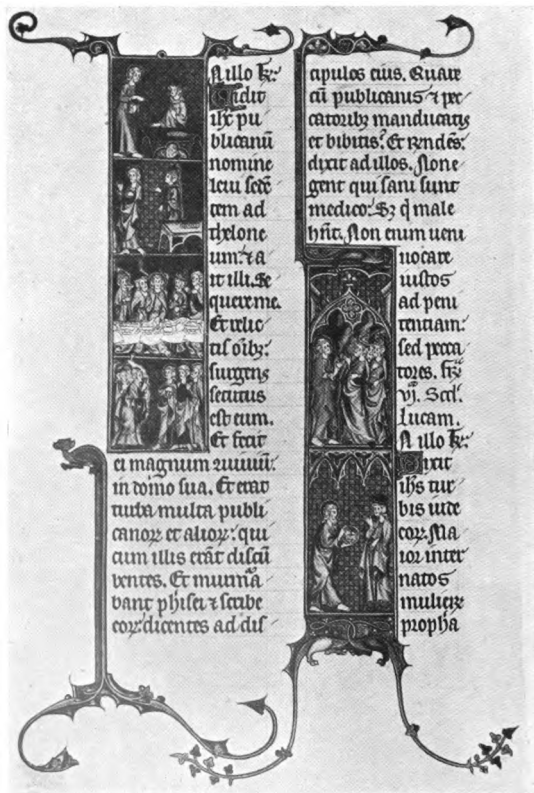 N illo t̄:
Vidit
ihc̄ pu
blicanū
nomine
leui sedē
tem ad
thelone
um: ⁊ a
it illi. Se
quere me.
Et relic
tis oībꝫ:
surgens
secutus
est eum.
Et fecit
ei magnum
in domo sua. Et erat
turba multa publi
canoꝝ et alioꝝ: qui
cum illis erāt discū
bentes. Et murmͣa
bant phͥsei ⁊ scribe
eoꝝ: dicentes ad dis
cipulos eius. Quare
cū publicanis ⁊ pec
catoribꝫ manducatis
et bibitis? Et
dixit ad illos. Non e
gent qui sani sunt
medico: Sꝫ q̇ male
hn̄t. Non enim ueni
uocare
iustos
ad peni
tentiam:
sed pecca
tores. 
vj. Scd̄.
lucam.
N illo t̄:
Dixit
ihs̄ tur
bis iude
oꝝ. Ma
ior inter
natos
mulierꝝ
propha